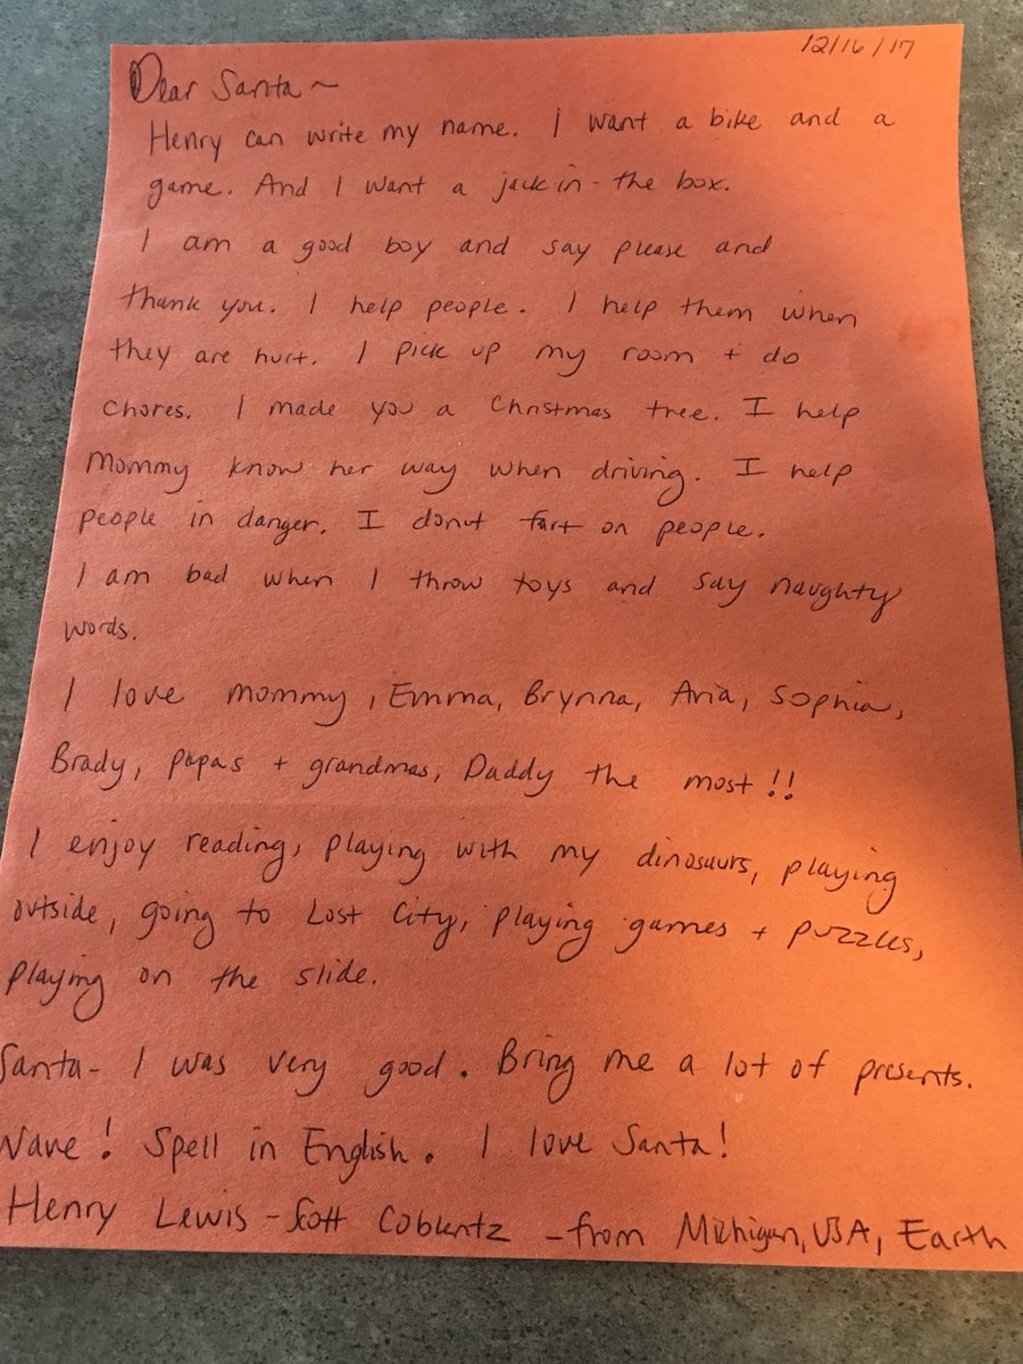 12/16/17
Dear Santa ~
Henry can write my name. I want a bike and a
game. And I want a jack-in-the box.
I am a good boy and say please and
thank you. I help people. I help them when
they are hurt. I pick up my room + do
chores. I made you a Christmas tree. I help
Mommy know her way when driving. I help
people in danger. I donut fart on people.
I am bad when I throw toys and say naughty
words.
I love mommy, Emma, Brynna, Aria, Sophia,
Brady, papas + grandmas, Daddy the most!!
I enjoy reading, playing with my dinosaurs, playing
outside, going to Lost City, playing games + puzzles,
playing on the slide.
Santa- I was very good. Bring me a lot of presents.
Wave! Spell in English. I love Santa!
Henry Lewis-Scott Coblentz - from Michigan, USA, Earth